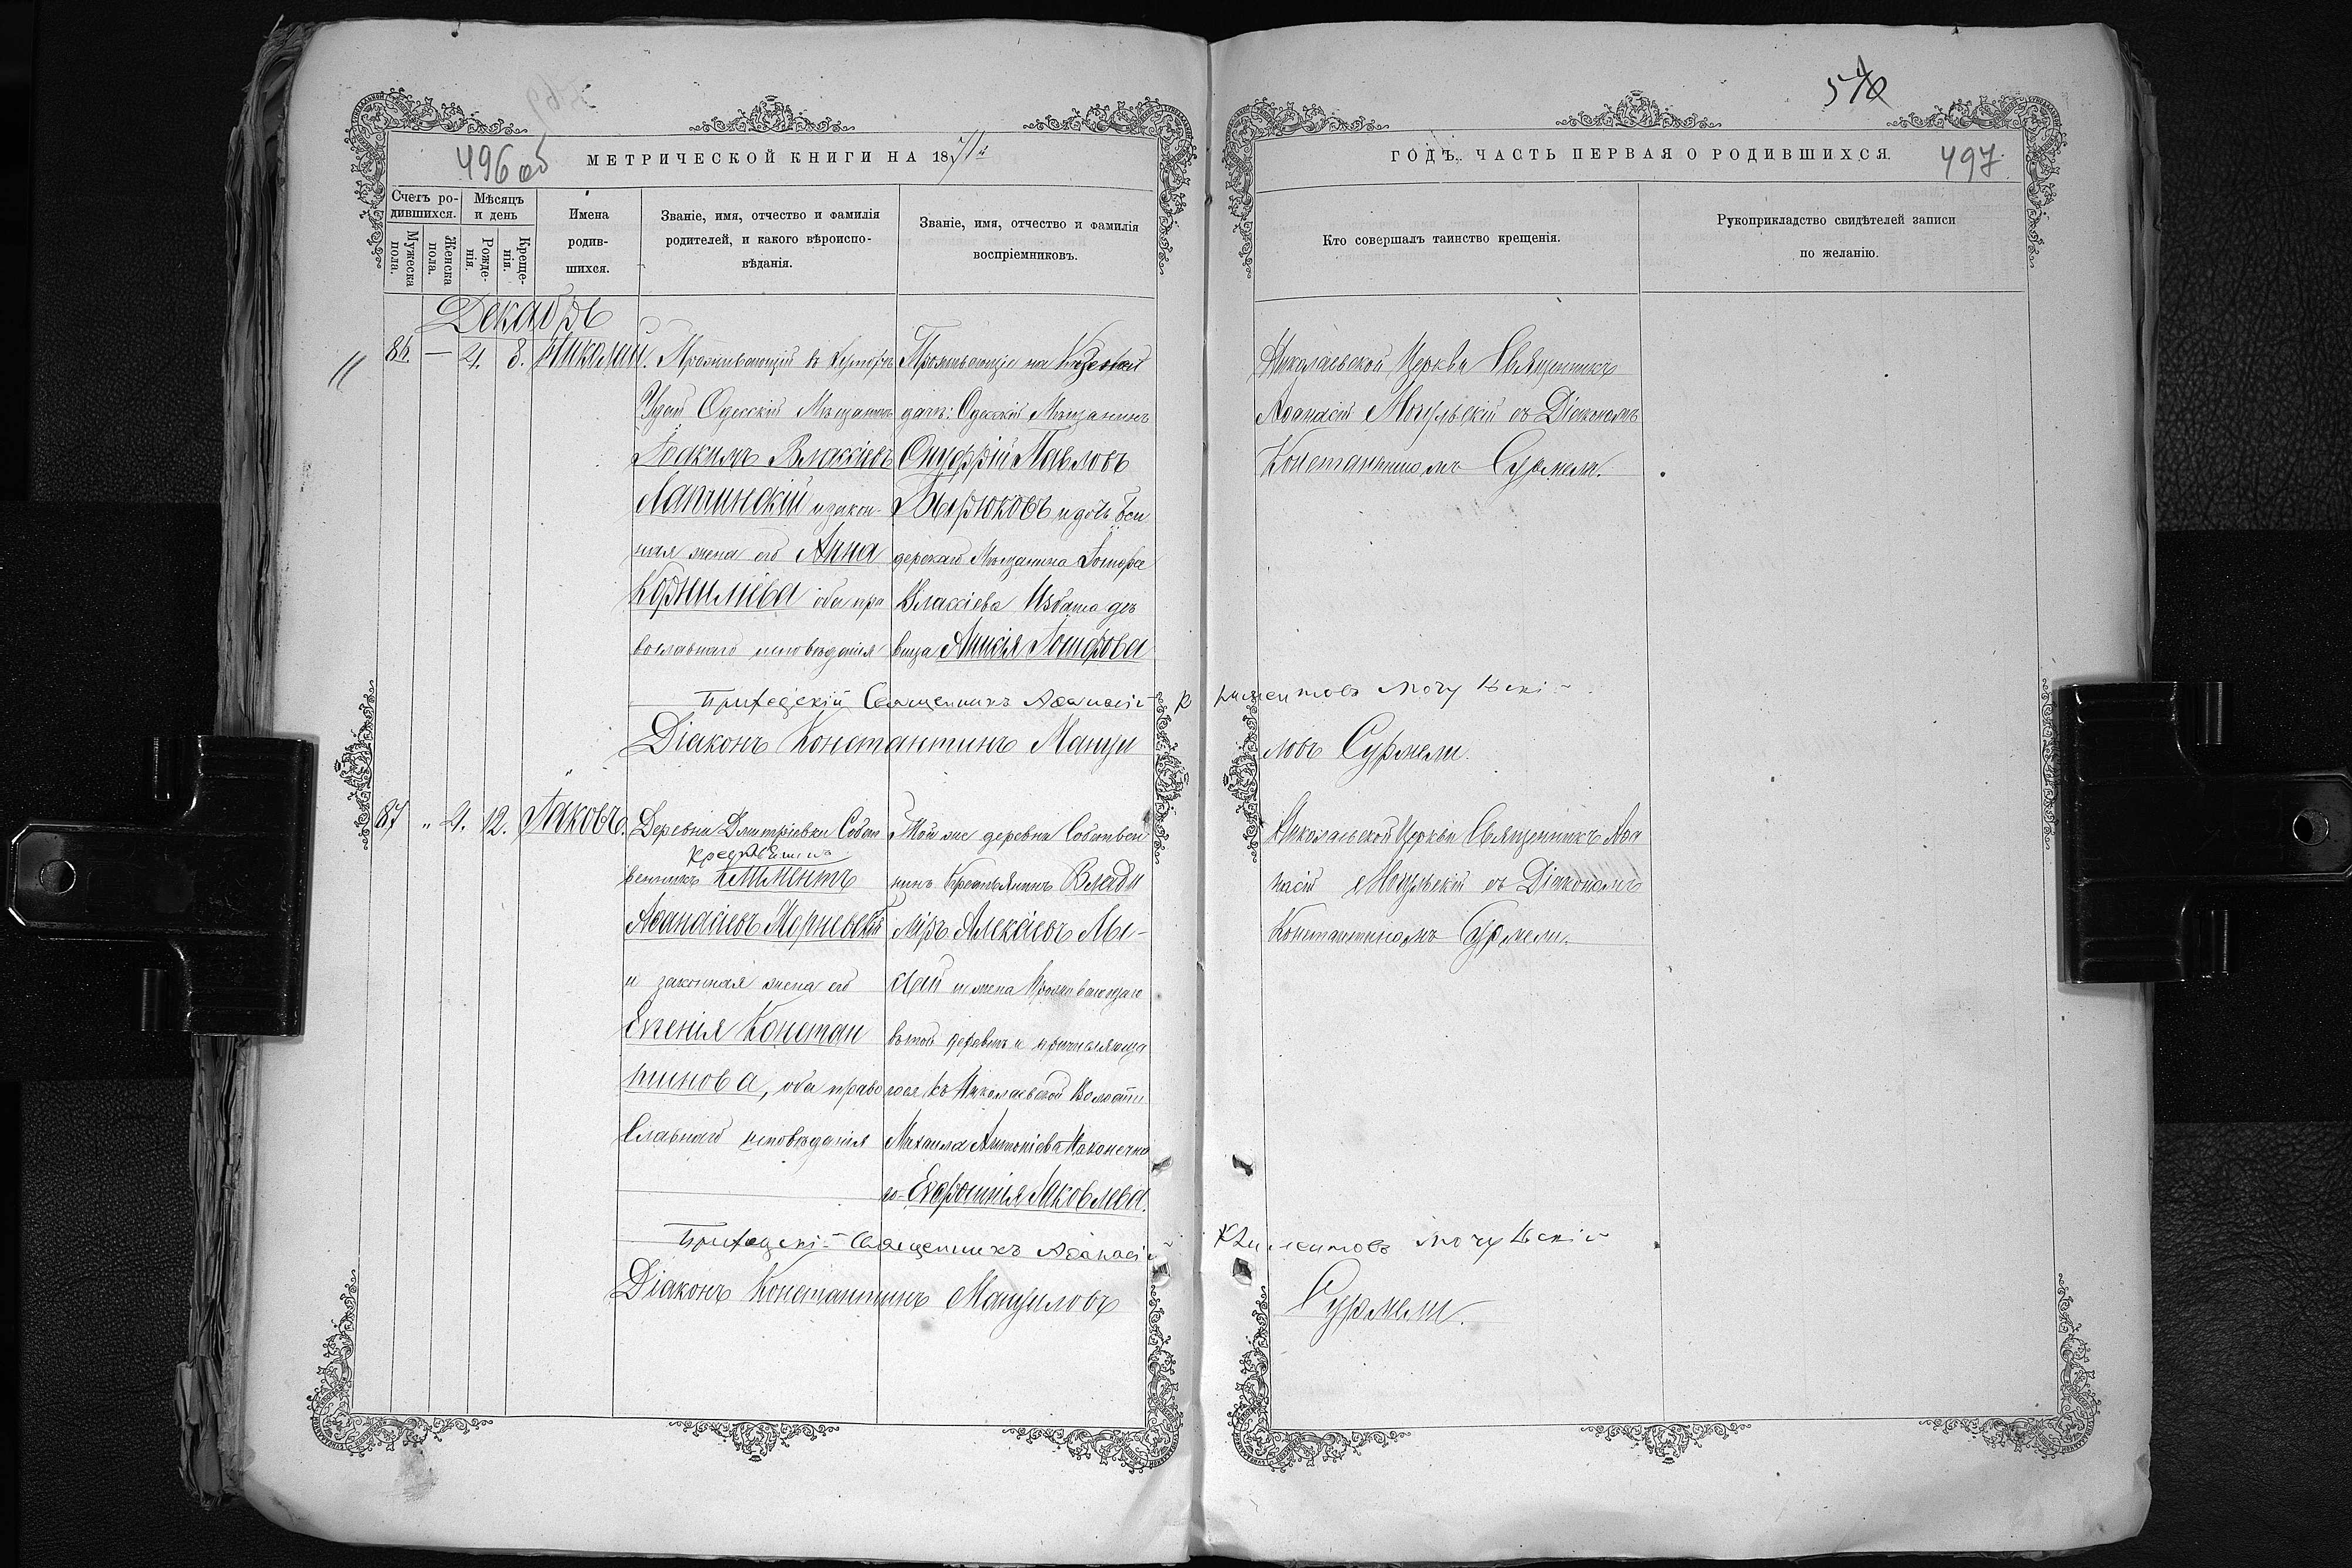 496 об
МЕТРИЧЕСКОЙ КНИГИ НА 1871й
Счетъ ро-
дившихся.
Мужеска
пола.
Женска
пола.
Мѣсяцъ
и день
Рожде-
нія.
Креще-
нія.
Имена
родив-
шихся.
Званіе, имя, отчество и фамилія
родителей, и какого вѣроиспо-
вѣданія.
Званіе, имя, отчество и фамилія
воспріемниковъ.
Декабрь
86. — 4. 8. Николай.
Проживающій в
Одесскій Мѣщанинъ
Іоакимъ Власіевъ
Лапчинскій и закон-
ная жена его Анна
Корнилiева оба пра
вославнаго исповѣданія
Проживающіе на
Одесскій Мѣщанинъ
Онуфрій Павловъ
Бырюковъ и дочь Бен
дерскаго Мѣщанина Іосифа
Власіева Избаша дѣ
вица Анисія Іосифова
Приходскій Священникъ Афанасій
Діаконъ Константинъ Мануи
87 " 4. 12. Іаковъ.
Деревни Дмитріевки Собст
крестьянинъ
венникъ Климентъ
Афанасіевъ Мерневскій
и законная жена его
Евгенія Констан
тинова, оба право
славнаго исповѣданія
Той же деревни Собствен
никъ Крестьянинъ Влади
міръ Алексіевъ Мы-
и жена Проживающаго
въ той деревнѣ и причисляюща
гося къ Николаевской Волости
Михаила Антоніева Наконечна
го Евфросинія Іаковлева.
Приходскій Священникъ Афанасій
Діаконъ Константинъ Мануиловъ
540
ГОДЪ. ЧАСТЬ ПЕРВАЯ О РОДИВШИХСЯ.
497
Кто совершалъ таинство крещенія.
Рукоприкладство свидѣтелей записи
по желанію.
Николаевской Церкви Священникъ
Афанасій Могульскій съ Діакономъ
Константиномъ Сурмели.
Климентовъ Могульскій
ловъ Сурмели.
Николаевской Церкви Священникъ Афа
насій Могульскій съ Діакономъ
Константиномъ Сурмели.
Климентовъ Могульскій
Сурмели.